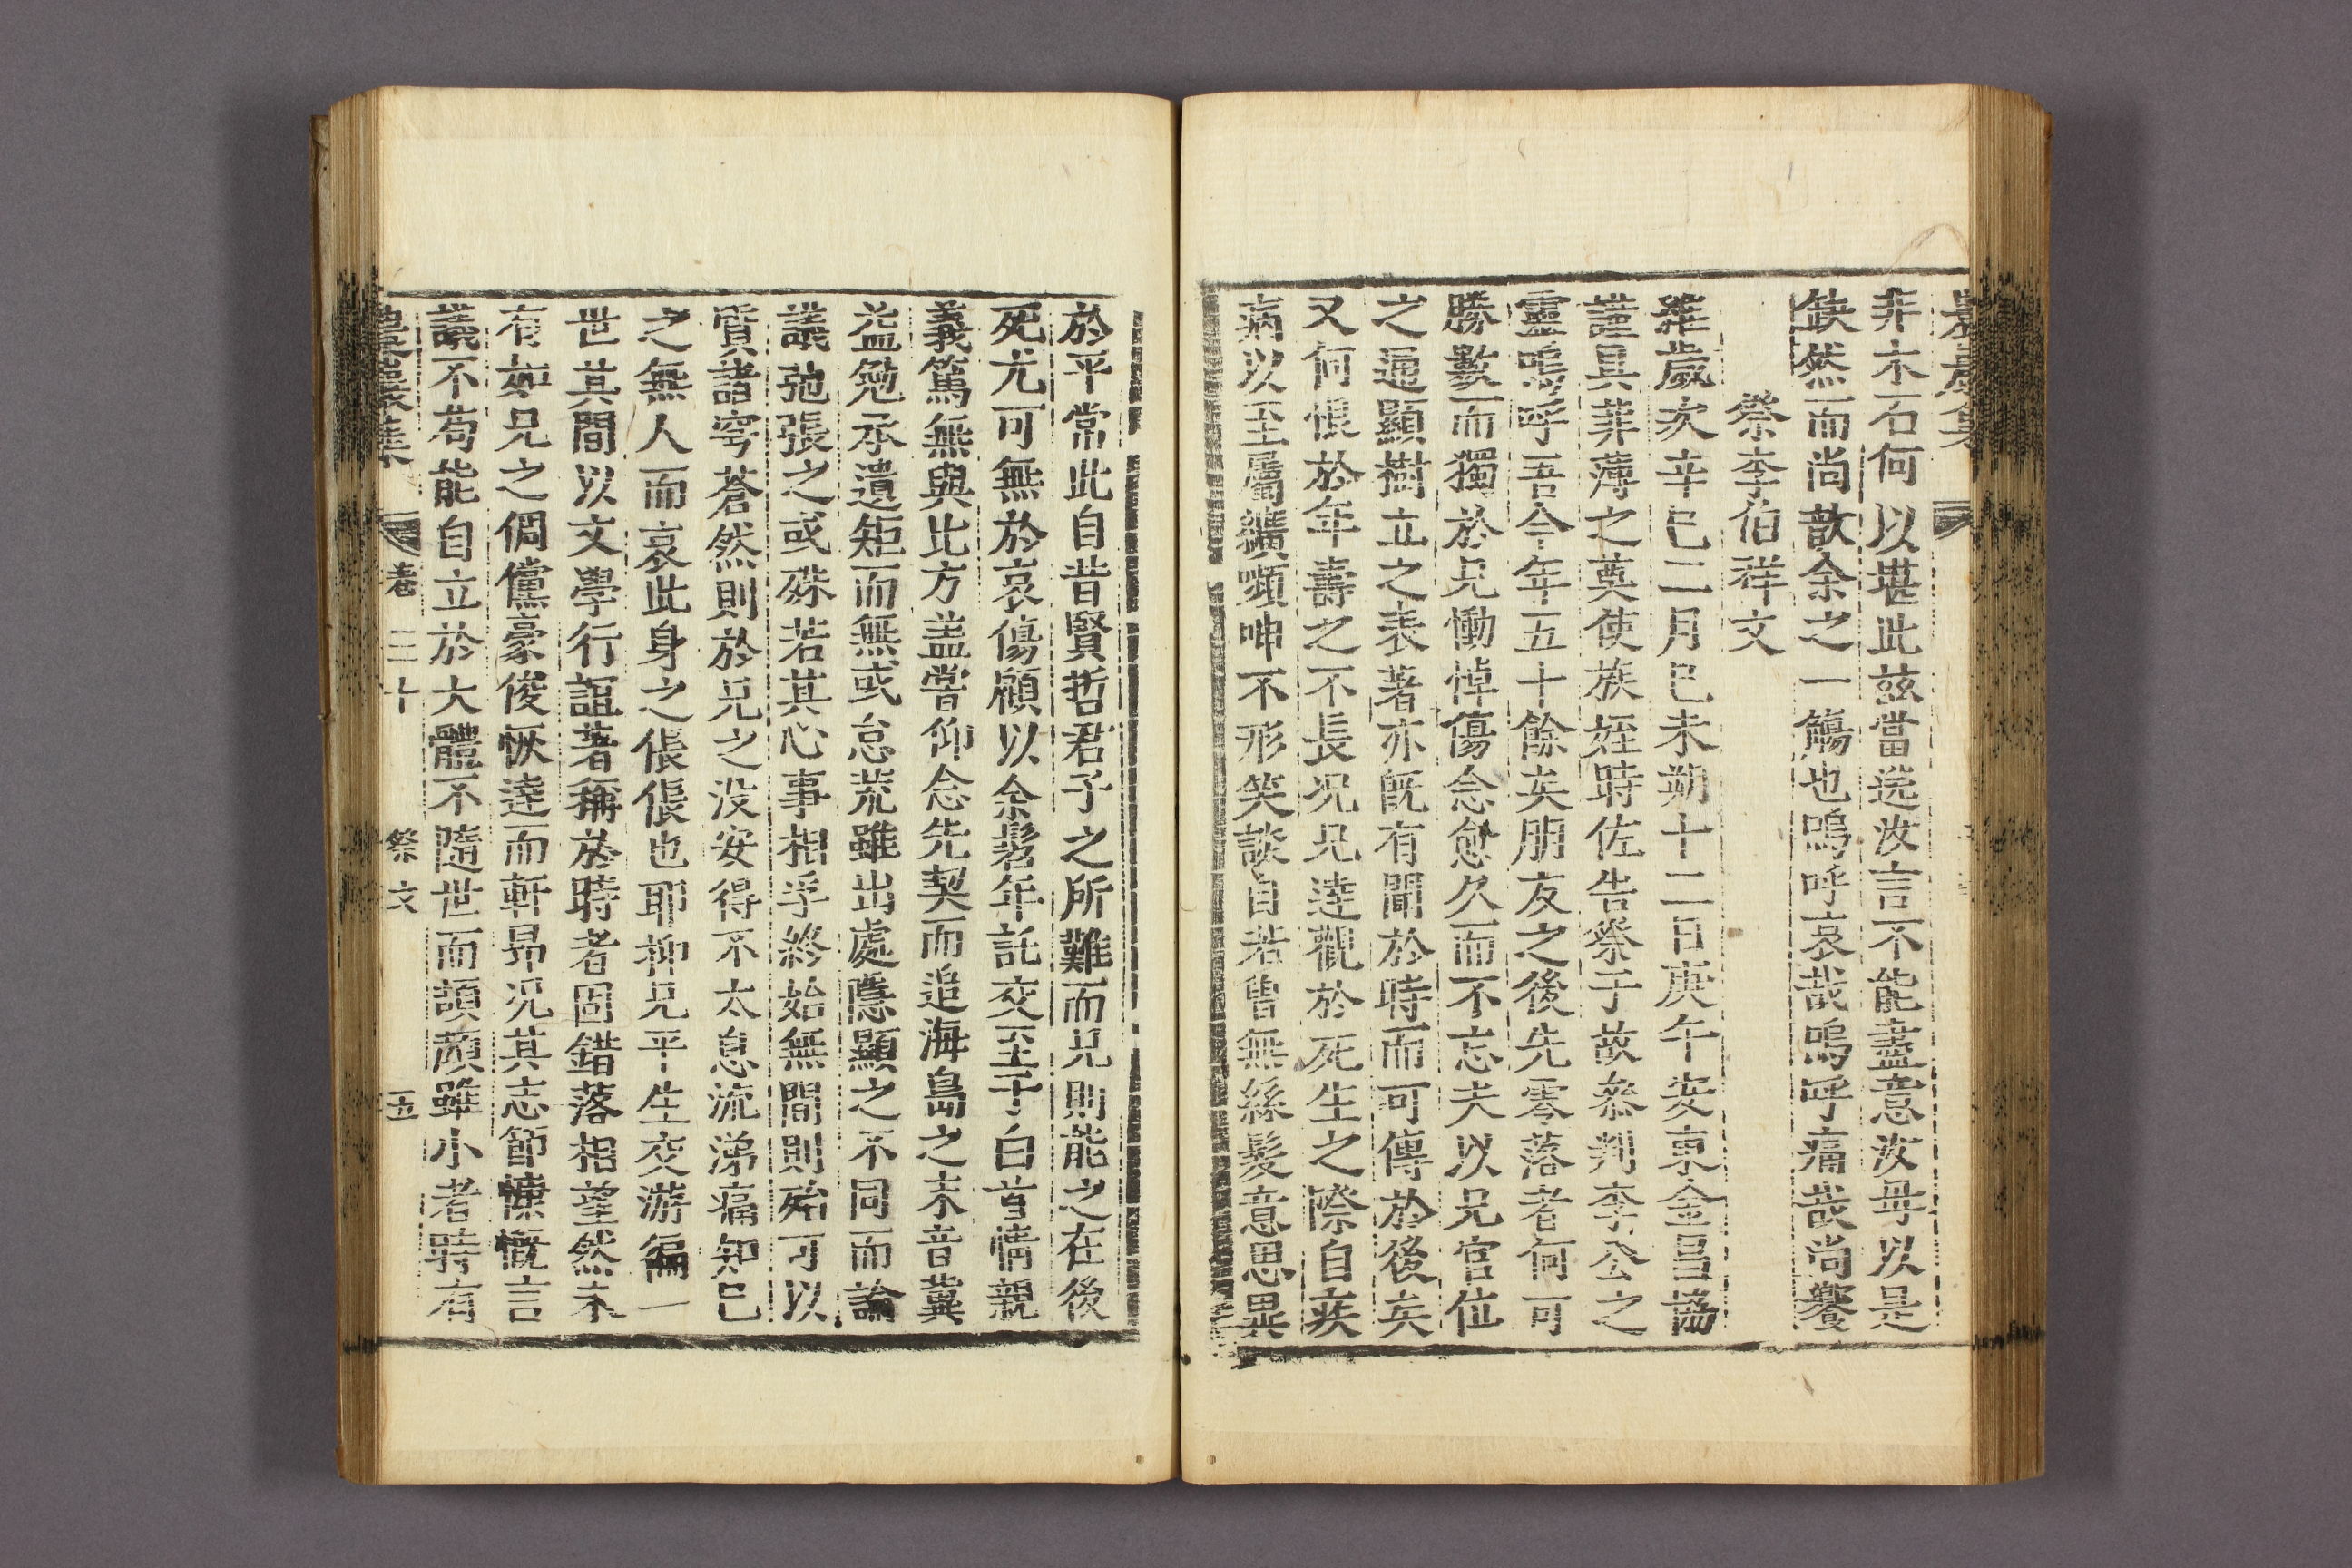 農巖集
非木石何以堪此兹當送汝言不能盡意汝毋以是
缺然而尚歆余之一觴也嗚呼哀哉嗚呼痛哉尚饗
祭李伯祥文
維歲次辛巳二月己未朔十二日庚午安東金昌協
謹具菲薄之奠使族姪時佐告祭于故叅判李公之
靈嗚呼吾今年五十餘矣朋友之後先零落者何可
勝數而獨於兄慟悼傷念愈久而不忘夫以兄官位
之通顯樹立之表著亦旣有聞於時而可傳於後矣
又何恨於年壽之不長况兄達觀於死生之際自疾
病以至屬纊嚬呻不形笑談自若曾無絲髮意思異
於平常此自昔賢哲君子之所難而兄則能之在後
死尤可無於哀傷顧以余髫年託交至于白首情親
義篤無與比方盖嘗仰念先契而追海島之末音冀
益勉承遺矩而無或怠荒雖出處隱顯之不同而論
議弛張之或殊若其心事相孚終始無間則殆可以
質諸穹蒼然則於兄之没安得不太息流涕痛知己
之無人而哀此身之倀倀也耶抑兄平生交游徧一
世其間以文學行誼著稱於時者固錯落相望然未
有如兄之倜儻豪俊恢達而軒昻况其志節慷慨言
議不苟能自立於大體不隨世而頡頏雖小者時有
農巖集 卷三十 祭文 五